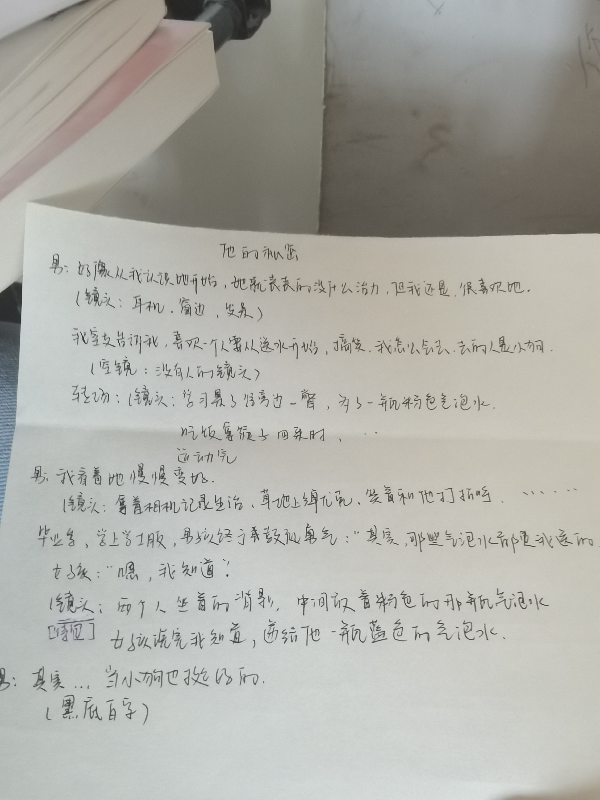 他的秘密
男：好像从我认识她开始，她就表表的没什么活力，但我还是很喜欢她.
(镜头：耳机、窗边、发呆)
我室友告诉我，喜欢一个人要从送水开始，搞笑，我怎么会去，去的人是小狗.
(空镜：没有人的镜头)
转场：(镜头：学习累了往旁边一瞥，多了一瓶粉色气泡水.
吃饭拿筷子回来时，…
运动完
男：我看着她慢慢变好.
(镜头：拿着相机记录生活，草地上绑尤克，笑着和他打招呼，……
毕业季，穿上学士服，男孩终于勇敢鼓勇气："其实，那些气泡水都是我送的.
女孩："嗯，我知道".
(镜头：两个人坐着的背影，中间放着粉色的那瓶气泡水
女孩说完我知道，递给他一瓶蓝色的气泡水.
男：其实… 当小狗也挺好的.
(黑底白字)